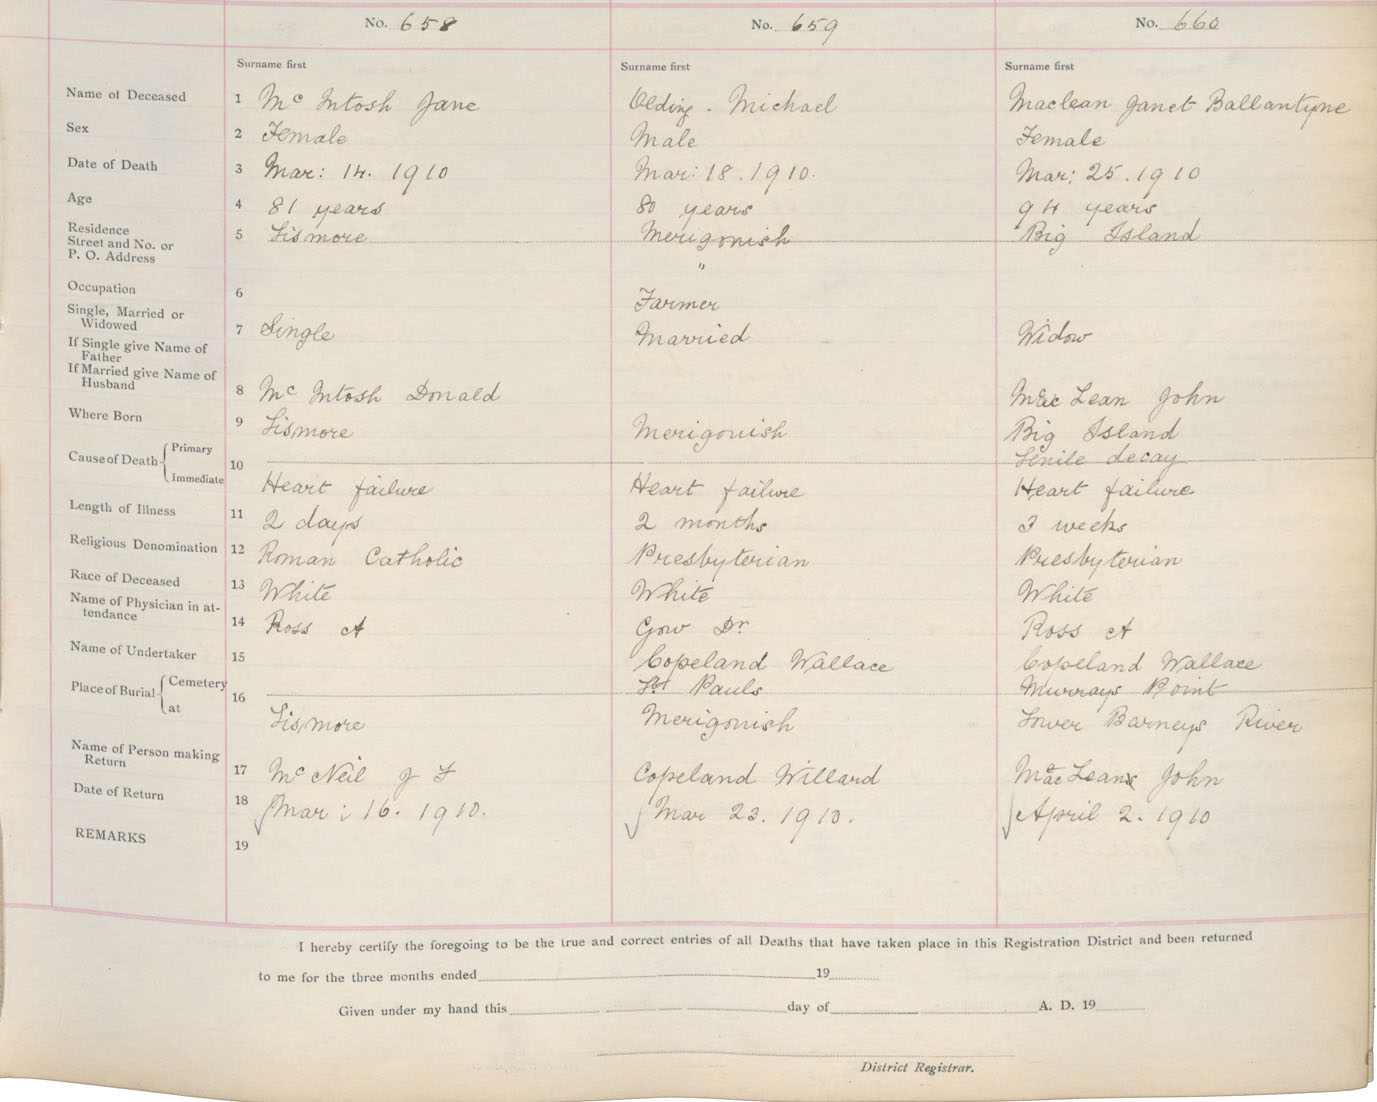 No. 658 No. 659 No. 660
Surname first Surname first Surname first
Name of Deceased 1 Mc Intosh Jane Olding. Michael Maclean Janet Ballantyne
Sex 2 Female Male Female
Date of Death 3 Mar: 14. 1910 Mar: 18. 1910. Mar: 25. 1910
Age 4 81 years 80 years 94 years
Residence
Street and No. or
P. O. Address 5 Lismore Merigonish Big Island
"
Occupation 6 Farmer
Single, Married or
Widowed 7 Single Married Widow
If Single give Name of
Father
If Married give Name of
Husband 8 Mc Intosh Donald Mac Lean John
Where Born 9 Lismore Merigonish Big Island
Cause of Death Primary 10 Senile decay
Immediate Heart failure Heart failure Heart failure
Length of Illness 11 2 days 2 months 3 weeks
Religious Denomination 12 Roman Catholic Presbyterian Presbyterian
Race of Deceased 13 White White White
Name of Physician in at-
tendance 14 Ross A Gow Dr Ross A
Name of Undertaker 15 Copeland Wallace Copeland Wallace
Place of Burial Cemetery 16 St Pauls Murrays Point
at Lismore Merigonish Lower Barneys River
Name of Person making
Return 17 Mc Neil J F Copeland Willard MacLean John
Date of Return 18 Mar: 16. 1910. Mar 23. 1910. April 2. 1910
REMARKS 19
I hereby certify the foregoing to be the true and correct entries of all Deaths that have taken place in this Registration District and been returned
to me for the three months ended 19
Given under my hand this day of A. D. 19
District Registrar.